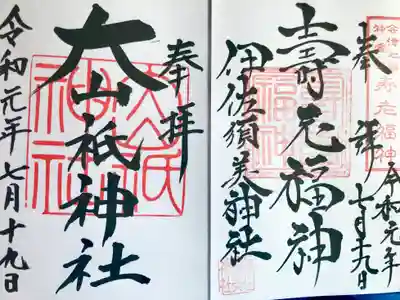 奉拝 令和元年七月十九日
壽老福神
伊佐須美神社
奉拝
大山祇神社
令和元年七月十九日